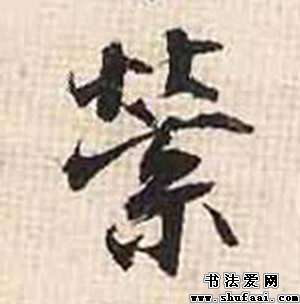 縈
书法爱网
www.shufaai.com